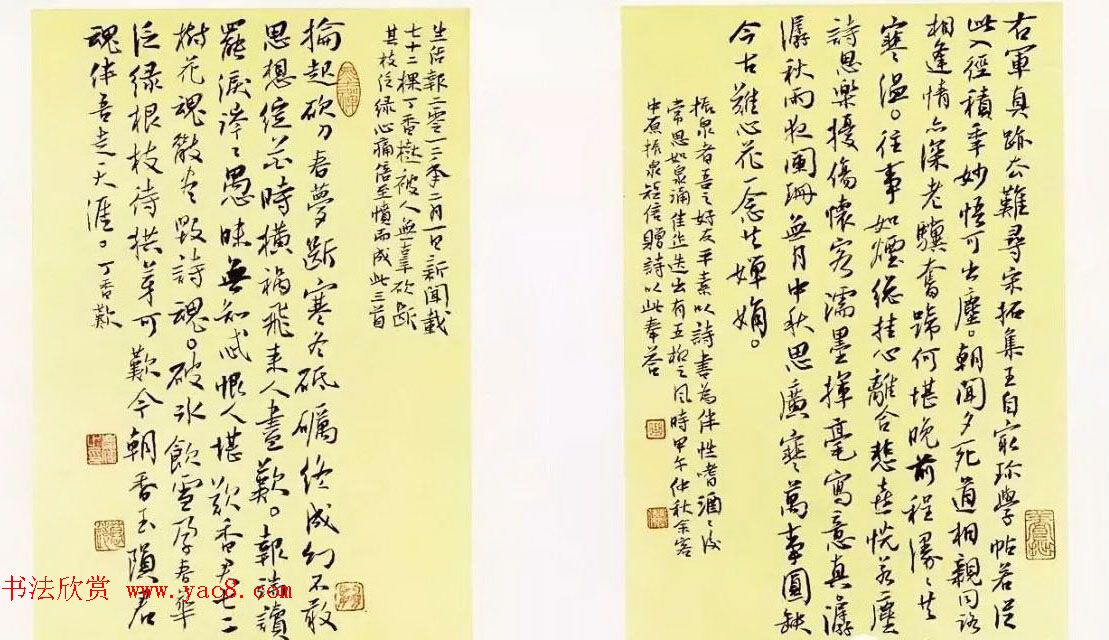 右軍真跡去難尋宋拓集王自寂珍學帖若從
此入徑積年妙悟可出塵。朝聞夕死道相親同路
相逢情亦深老驥奮蹄何堪晚前程漫漫共
寒溫。往事如煙總挂心離合悲喜恍若塵
詩思樂擾傷懷客濡墨揮毫寫意真潺
潺秋雨夜闌珊無月中秋思廣寒萬事圓缺
今古難心花一念共嬋娟。
振泉者吾之好友平素以詩書為伴性嗜酒酒後
常思如泉涌佳作迭出有五柳之風時甲午仲秋余客
中原振泉短信贈詩以此奉答
生活報二零一三年二月一日新聞載
七十二棵丁香樹被人無辜砍斷
其枝泛綠心痛倍至憤而成此三首
掄起砍刀春夢斷寒冬砥礪終成幻不敢
思想綻花時橫禍飛來人盡歎。報端讀
罷淚潸潸愚昧無知最恨人堪歎香君七十二
樹花魂散盡斷詩魂。破冰飲雪孕春華
泛綠根枝待拱芽可歎今朝香玉隕君
魂伴吾走天涯。丁香歎
书法欣赏 www.yac8.com